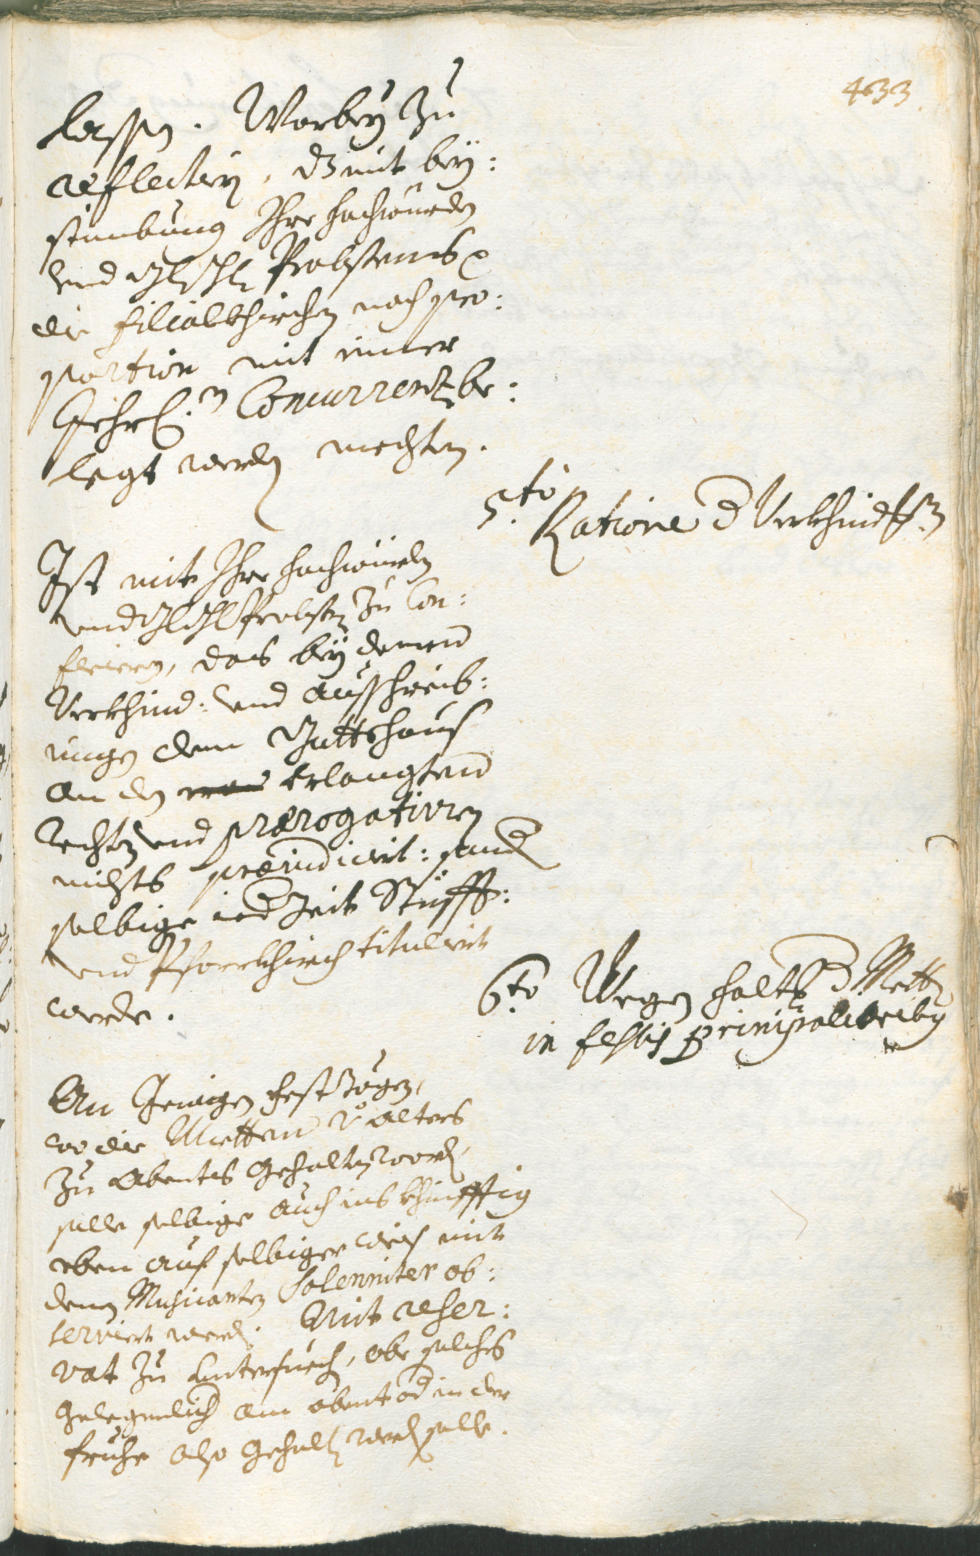 433
lassen. Worbey zu
reflectirn, dz mit bey:
stimbung Ihre hochwürden
vnd Probstens
die filialkhirchen nach pro:
portion mit einer
Jehrl:n Concurrenz be:
legt werden mechten.
5.to
Ratione d Verkhindtß:
Ist mit Ihre hochwürden
vnd Probsten zu Con:
feriern, das bey denen
Verkhind: vnd ausschreib:
ungen dem Gottshaus
an den erlangten
rechten vnd prærogativen
nichts præiudiciert: sondern
selbige ied Zeit Stüfft:
vnd Pfarrkhirch titulirt
werde.
6.to Wegen halts d Metten
in festis principalioribus
An Jenigen fest Tägen,
wo die Metten v: alters
zu Abents gehalten word,
solle selbige auch ins khinfftig
eben auf selbiger weis mit
denen Musicanten Solenniter ob:
servirt werd. Mit reser:
vat zu untersuech, obe solches
gelegenlich am abent od in der
fruhe also gehalten werd solle.